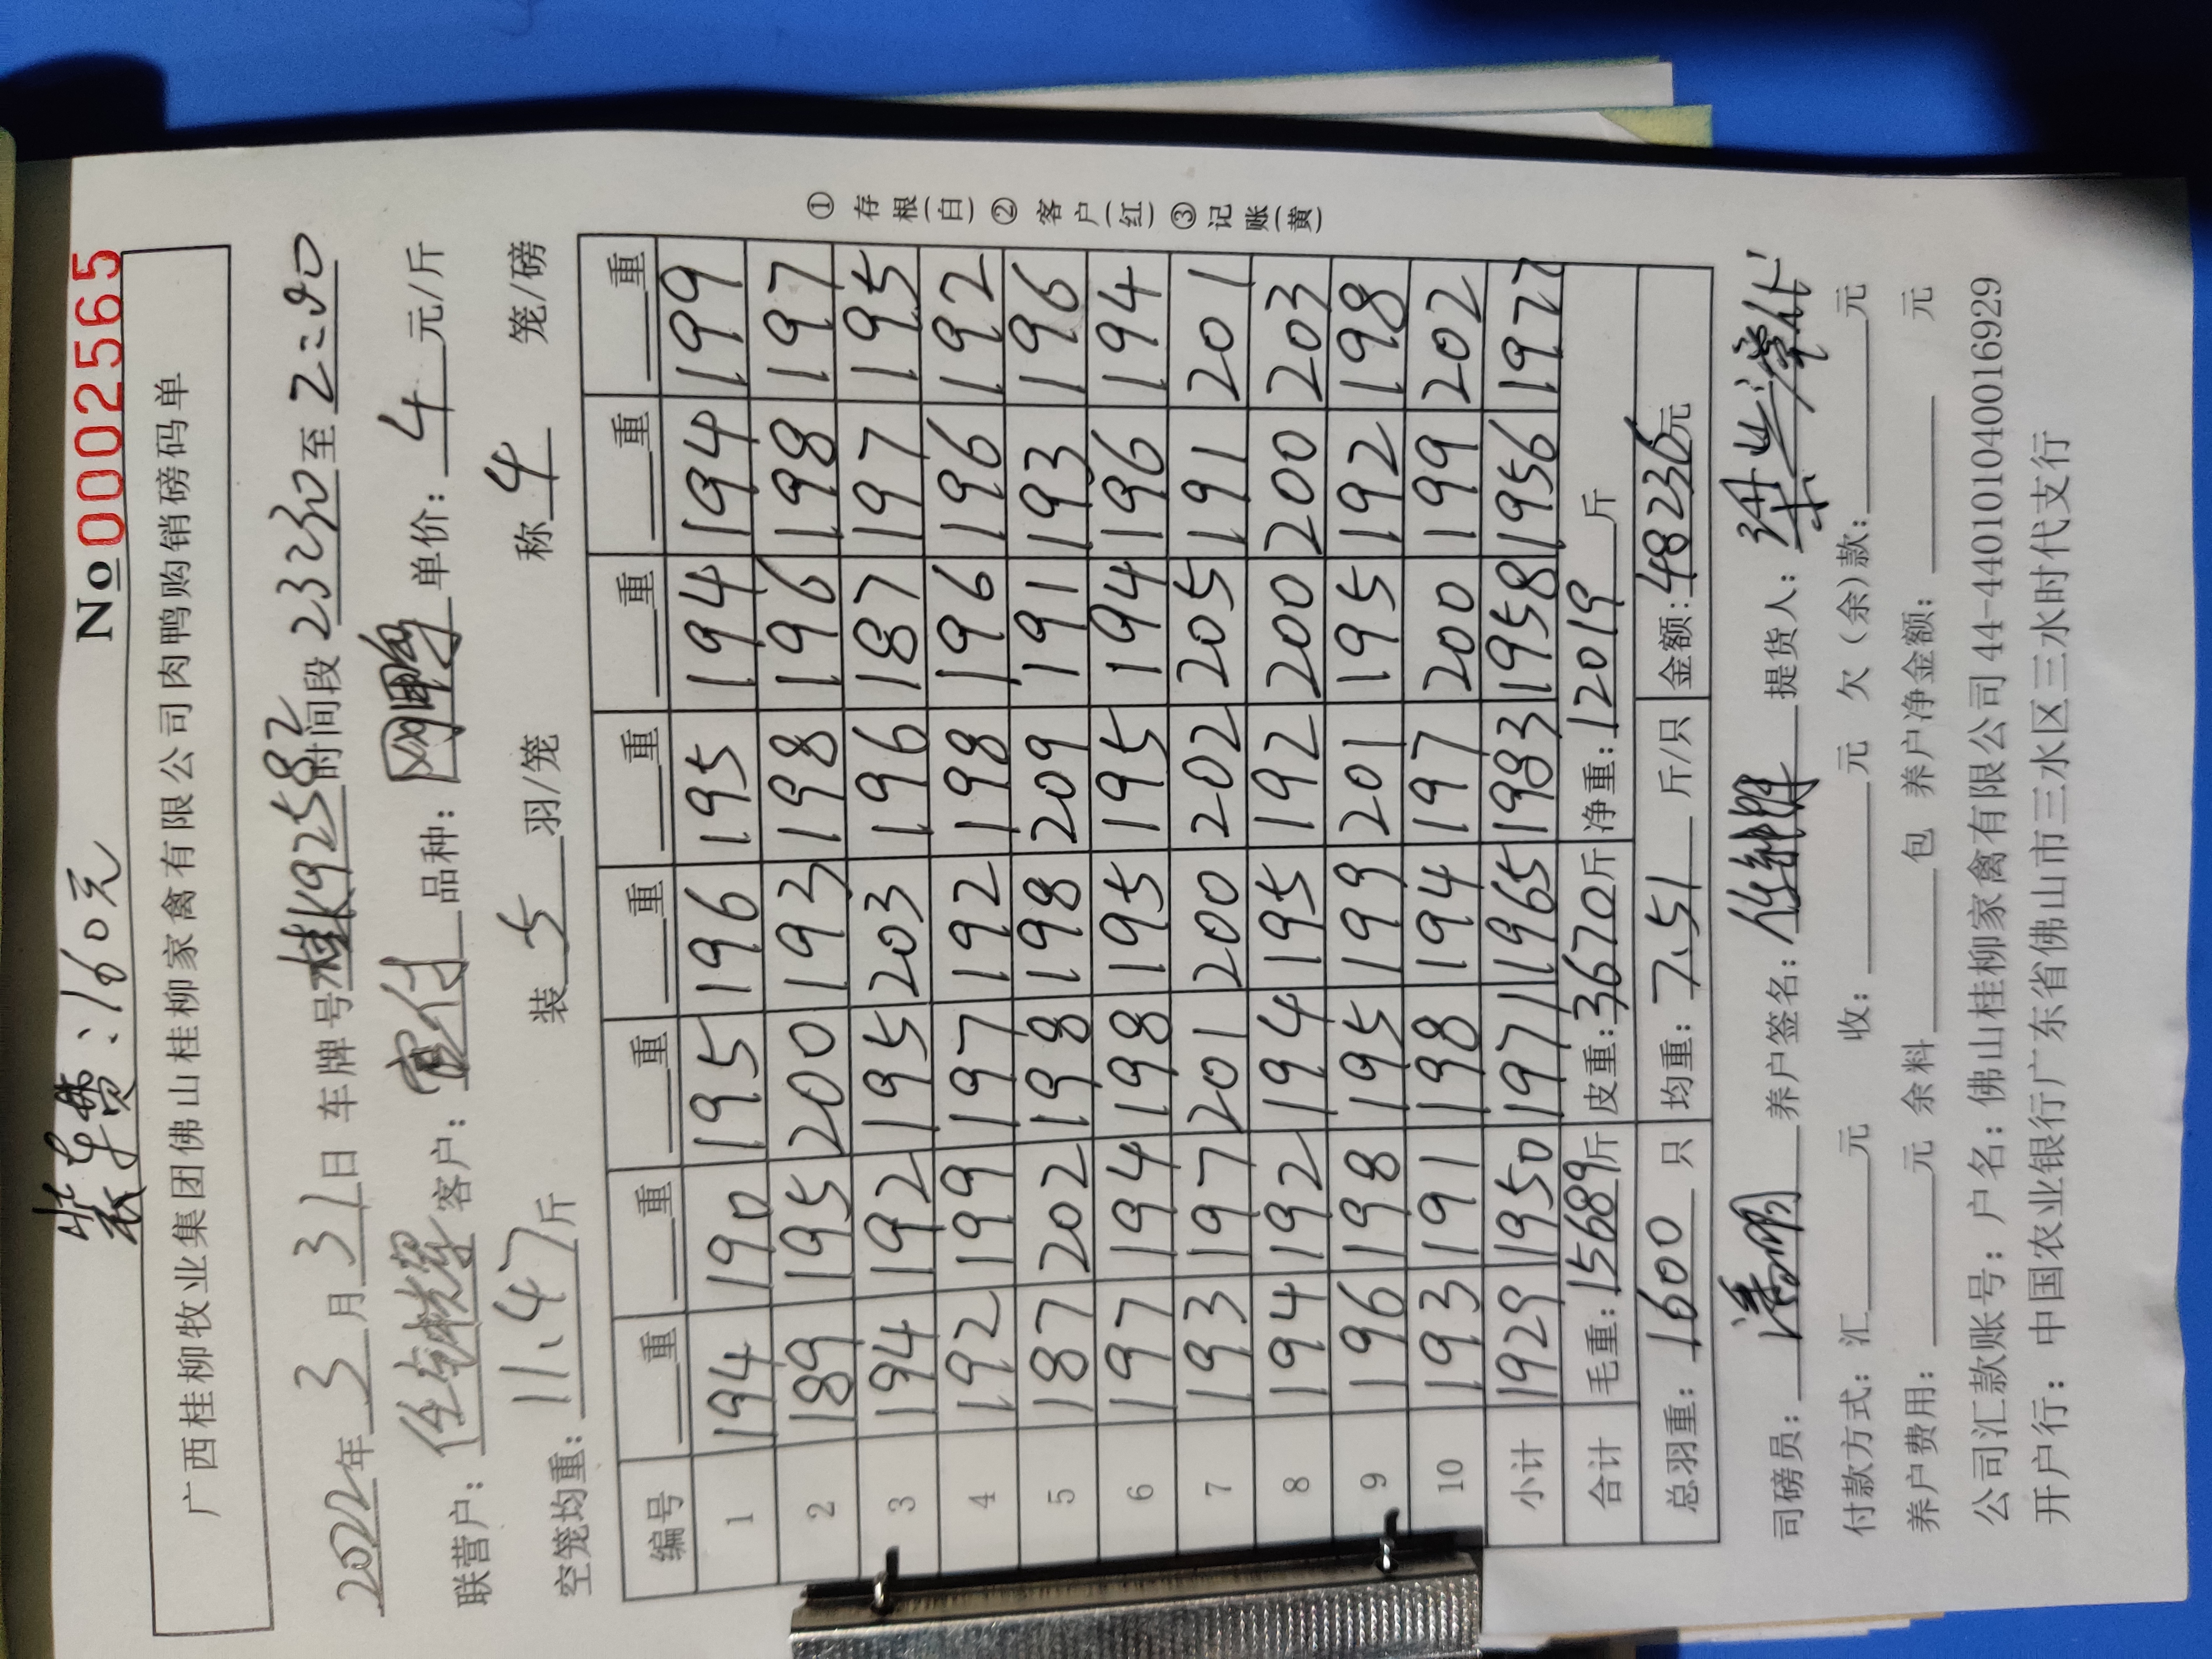 装车费:160元
No 0002565
广西桂柳牧业集团佛山桂柳家禽有限公司肉鸭购销磅码单
2022年3月31日 车牌号桂K92582时间段23:30至2:00
联营户: 客户: 品种: 单价: 4 元/斤
空笼均重: 11.47斤 装 5 羽/笼 称 4 笼/磅
编号 重 重 重 重 重 重 重 重
1 194 190 195 196 195 194 194 199
2 189 195 200 193 198 196 198 197
3 194 192 195 203 196 187 197 195
4 192 199 197 192 198 196 196 192
5 187 202 198 198 209 191 193 196
6 197 194 198 195 195 194 196 194
7 193 197 201 200 202 205 191 201
8 194 192 194 195 192 200 200 203
9 196 198 195 199 201 195 192 198
10 193 191 198 194 197 200 199 202
小计 1929 1950 1971 1965 1983 1958 1956 1977
合计 毛重:15689斤 皮重:3670斤 净重:12019 斤
总羽重: 1600 只 均重: 7.51 斤/只 金额:48236元
司磅员: 养户签名: 提货人:
付款方式: 汇 元 收: 元 欠(余)款: 元
养户费用: 元 余料 包 养户净金额: 元
公司汇款账号: 户名: 佛山桂柳家禽有限公司 44-440101040016929
开户行: 中国农业银行广东省佛山市三水区三水时代支行
① 存根(白) ② 客户(红) ③ 记账(黄)